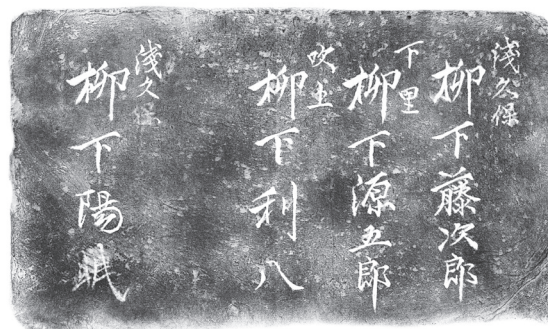 淺久保
柳下藤次郎
下里
柳下源五郎
吹上
柳下利八
淺久保
柳下陽